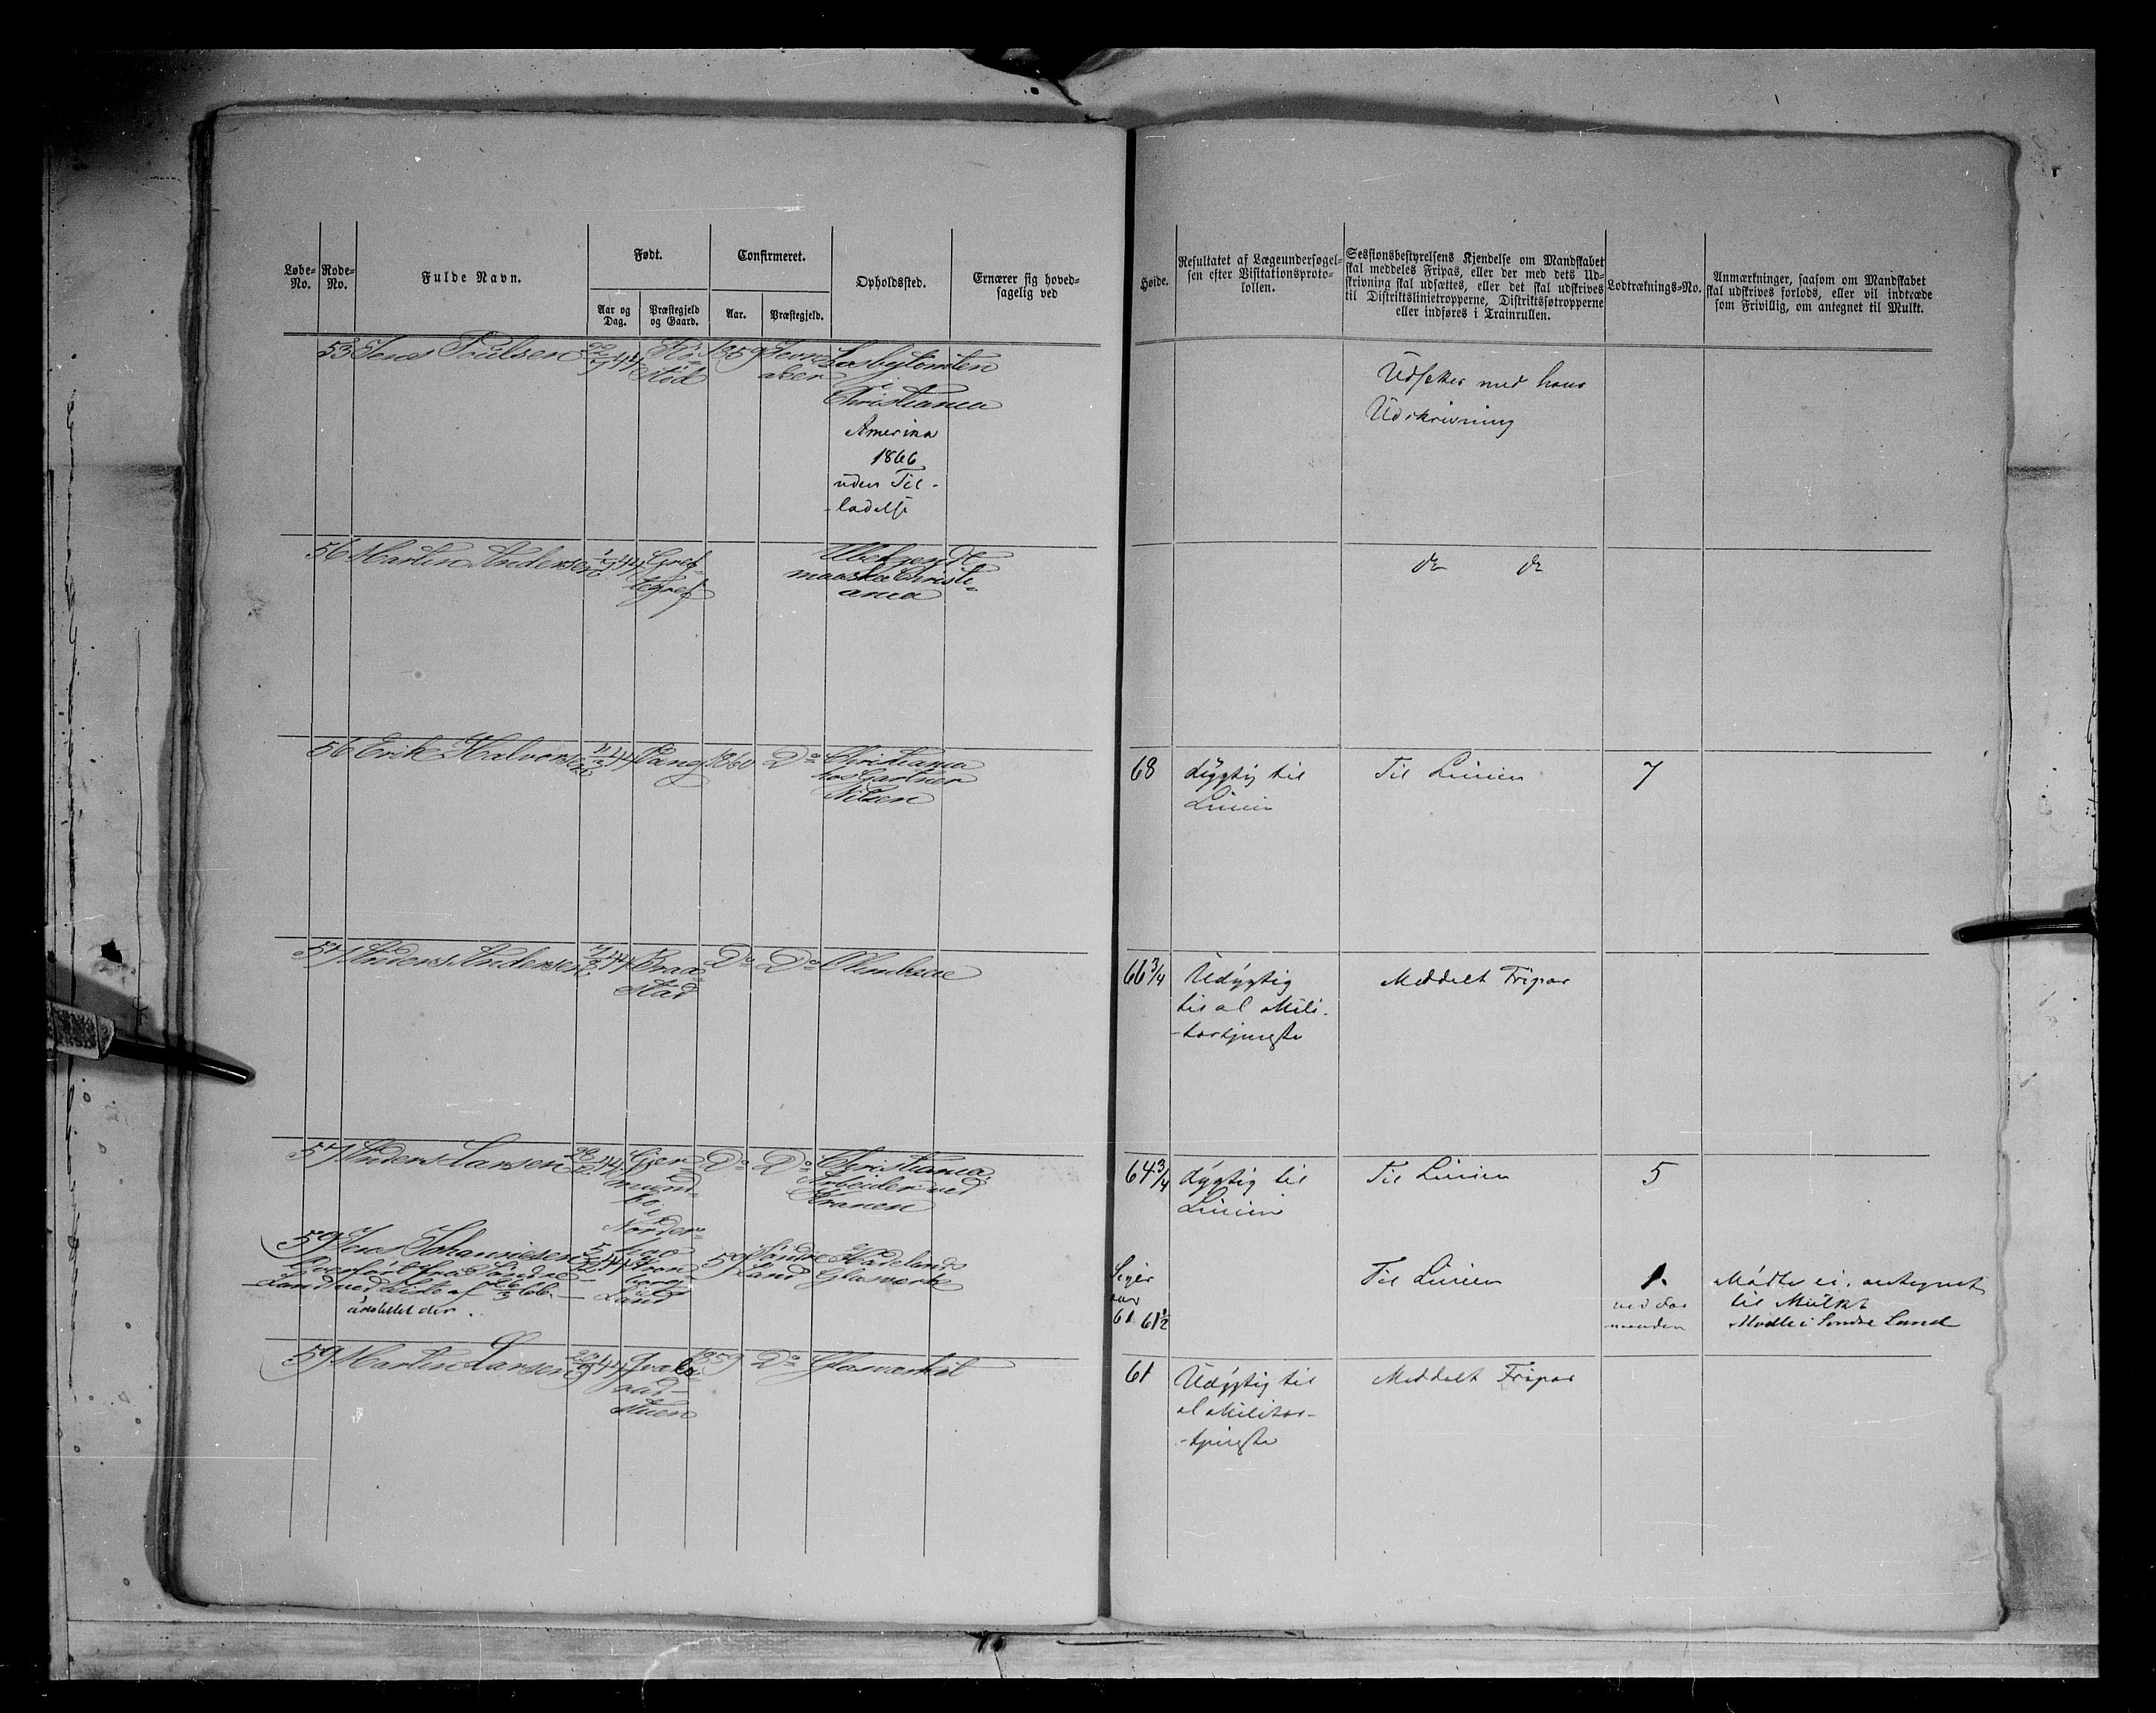 Løbe-No.
Rode-No.
Fulde Navn.
Født.
Aar og Dag.
Præstegjeld og Gaard.
Confirmeret.
Aar.
Præstegjeld.
Opholdssted.
Ernærer sig hoved-
sagelig ved
Høide.
Resultatet af Lægeundersøgel-
sen efter Visitationsproto-
kollen.
Sessionsbestyrelsens Kjendelse om Mandskabet
skal meddeles Fripas, eller der med dets Ud-
skrivning skal udsættes, eller det skal udskrives
til Distriktslinietropperne, Distriktsøtropperne
eller indføres i Trainrullen.
Lodtræknings-No.
Anmærkninger, saasom om Mandskabet
skal udskrives forlods, eller vil indtræde
som Frivillig, om antegnet til Mulkt.
53 Jens Poulsen 44 1859
Christiania
Amerika
1866
uden Til-
ladelse
Udsættes med hans
Udskrivning
56 Martin Andersen 44
maaske Christi-
ania
do do
56 Erik Halvorsen 44 Vang 1860 Do Christiania
hos Gartner
Nilsen
68 dygtig til
Linien
Til Linien 7
57 Anders Andersen 44 Braa-
stad
Do Do
66 3/4 Udygtig
til al Mili-
tærtjeneste
Meddelt Fripas
57 Anders Larsen 44 Gjer-
mund-
bo
i
Norder-
hoo
Do Do Christiania
Arbeider ved
Kranen
64 3/4 dygtig til
Linien
Til Linien 5
59 Jens Johannesen 44 59 Søndre Hadelands
Land Glasværk
Overført fra Søndre
Land ved Liste af 66.
udslettet der.
61 61 1/2
Til Linien 1.
Mødte ei, antegnet
til Mulkt
Mødte i Søndre Land
59 Martin Larsen 44 1859 Do Glasværket
61 Udygtig til
al Militær-
tjeneste
Meddelt Fripas